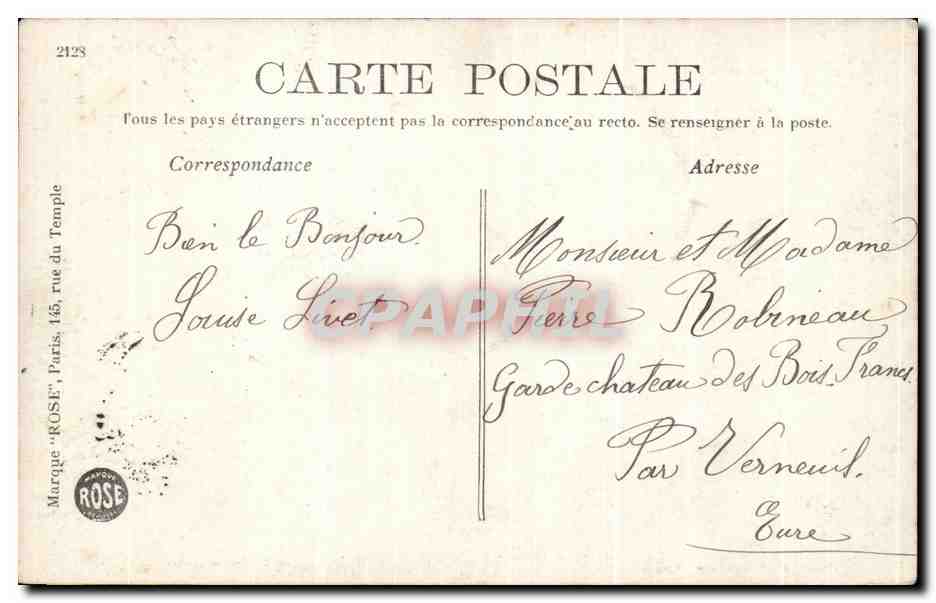 2128
CARTE POSTALE
Tous les pays étrangers n'acceptent pas la correspondance au recto. Se renseigner à la poste.
Correspondance
Adresse
Bien le Bonjour.
Louise Livet
Monsieur et Madame
Pierre Robineau
Garde chateau des Bois-Francs
Par Verneuil.
Eure
Marque "ROSE", Paris, 145, rue du Temple
MARQUE
ROSE
CPAPHIL